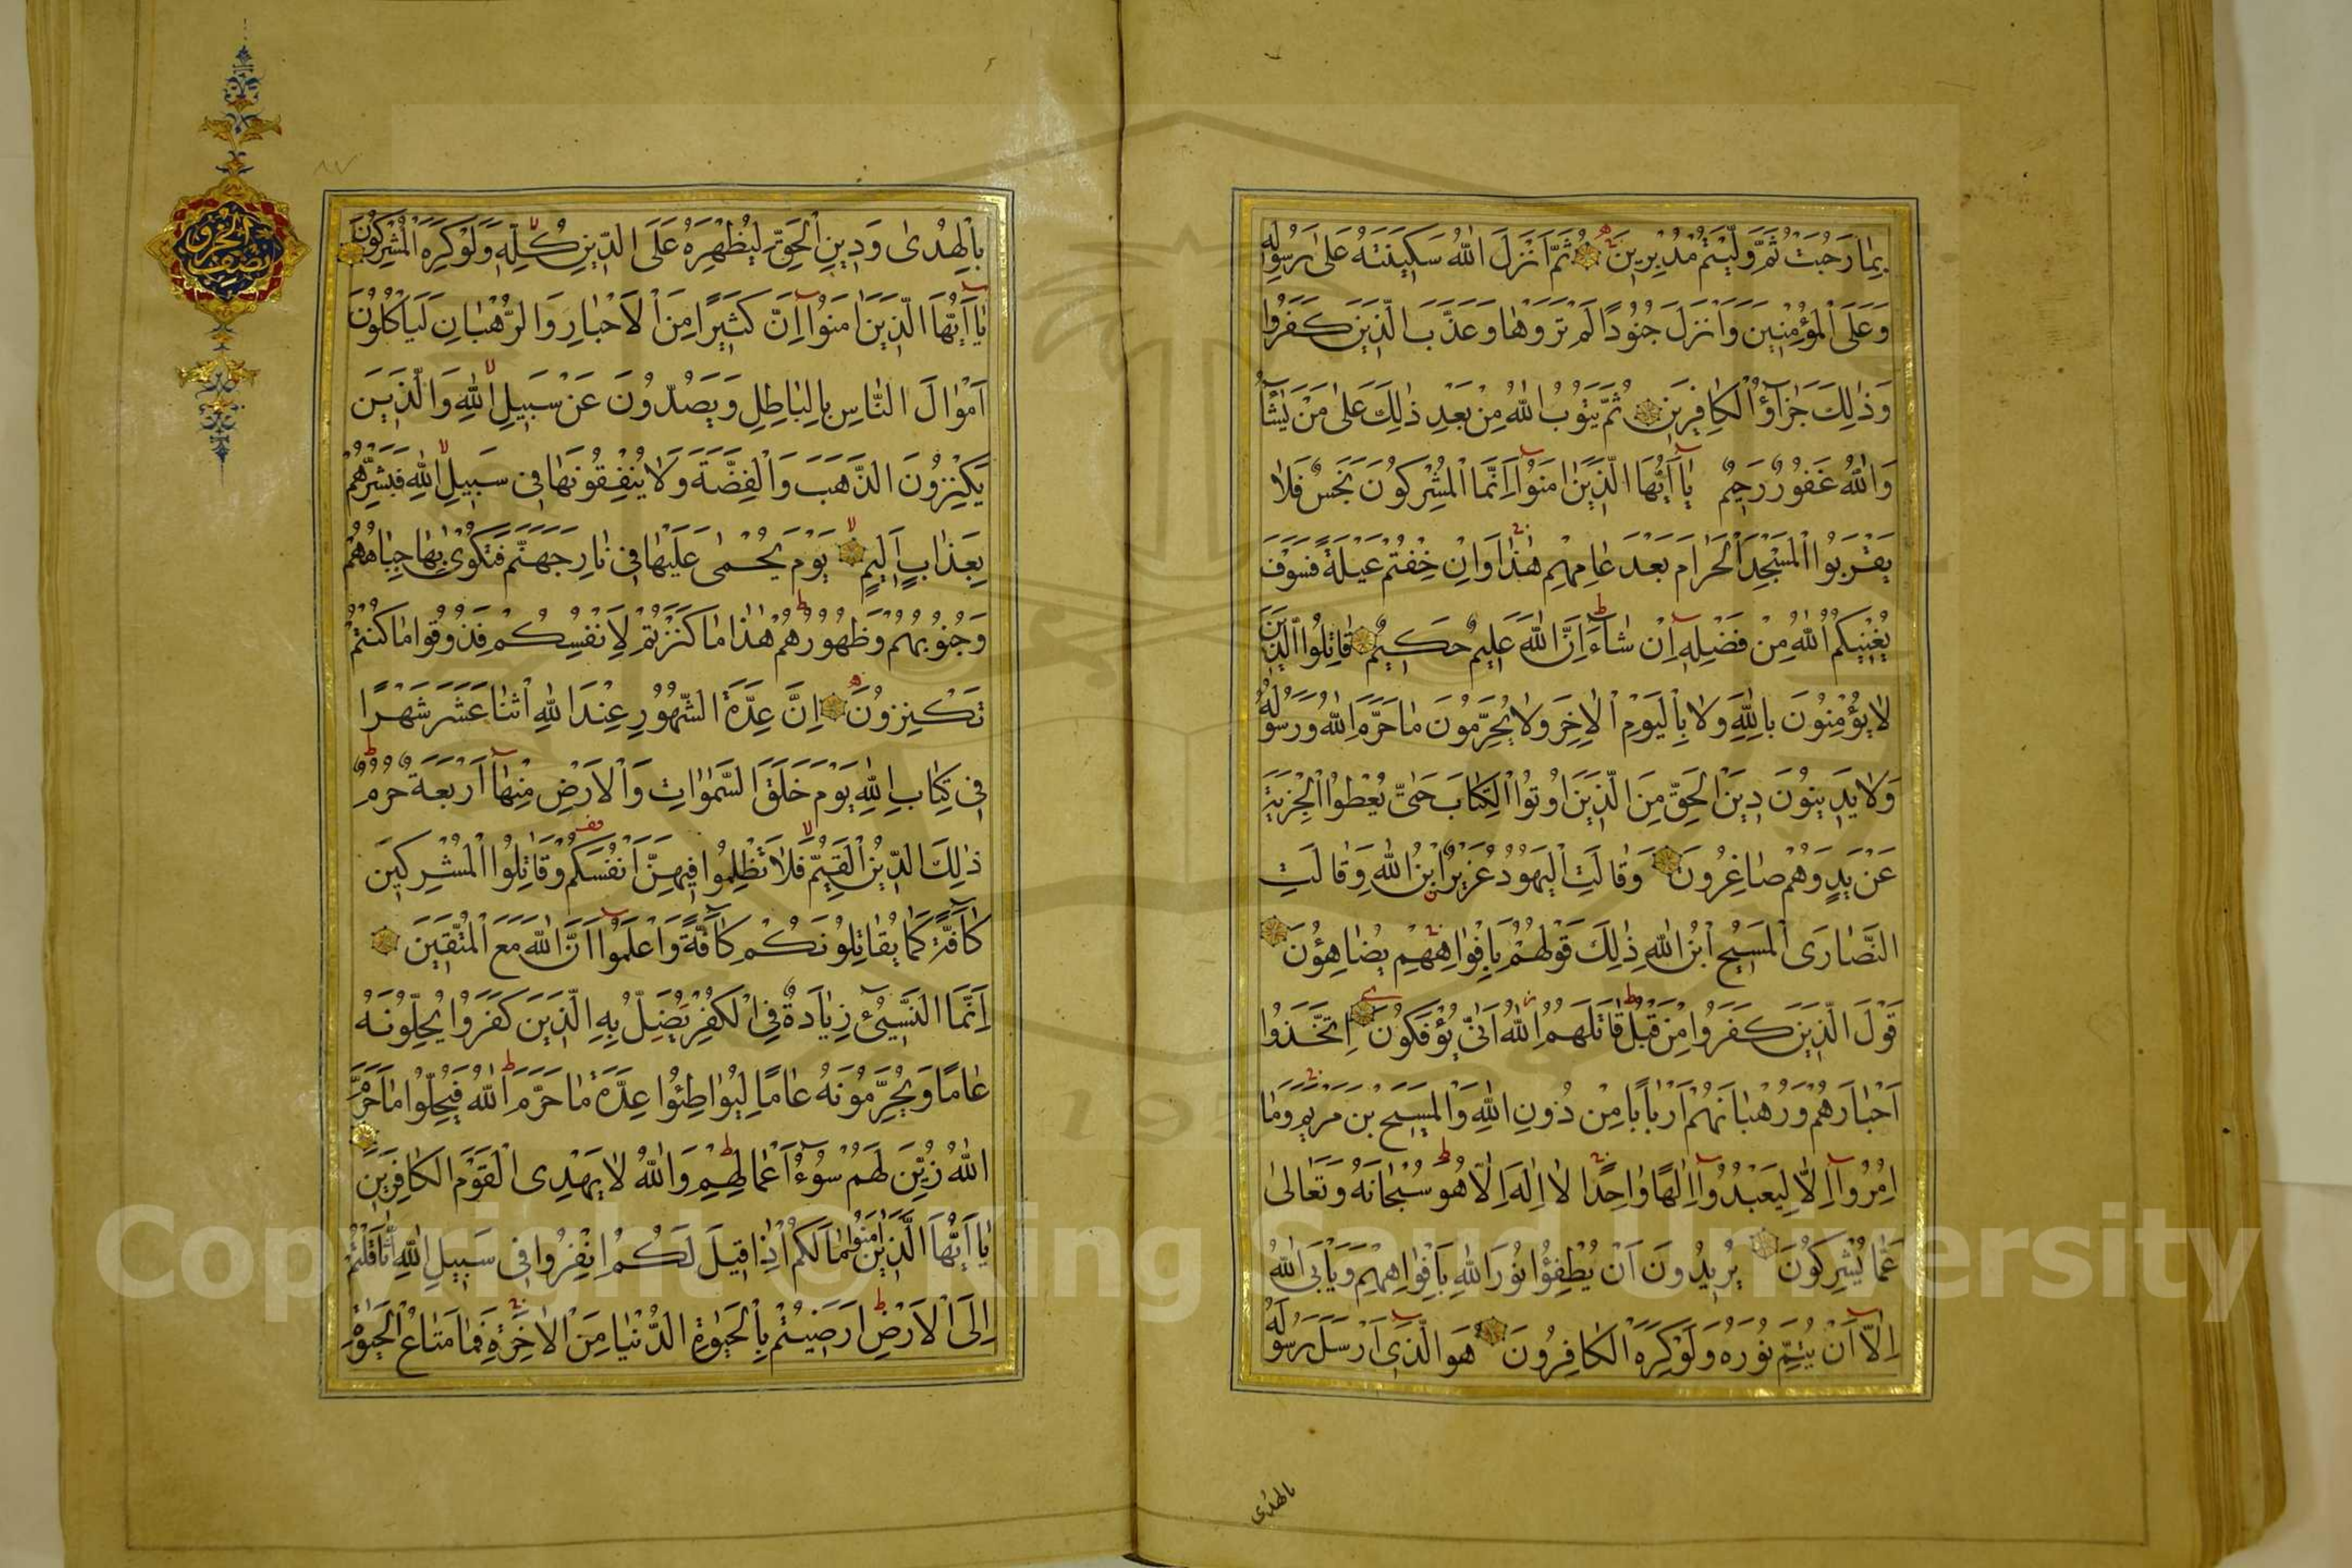 بِمَا رَحُبَتْ ثُمَّ وَلَّيْتُمْ مُدْبِرِينَ ثُمَّ اَنْزَلَ اللّٰهُ سَكِينَتَهُ عَلٰى رَسُولِهِ
وَعَلَى الْمُؤْمِنِينَ وَاَنْزَلَ جُنُودًا لَمْ تَرَوْهَا وَعَذَّبَ الَّذِينَ كَفَرُوا
وَذٰلِكَ جَزَآؤُ الْكَافِرِينَ ثُمَّ يَتُوبُ اللّٰهُ مِنْ بَعْدِ ذٰلِكَ عَلٰى مَنْ يَشَآءُ
وَاللّٰهُ غَفُورٌ رَحِيمٌ يَآ اَيُّهَا الَّذِينَ اٰمَنُوٓا اِنَّمَا الْمُشْرِكُونَ نَجَسٌ فَلَا
يَقْرَبُوا الْمَسْجِدَ الْحَرَامَ بَعْدَ عَامِهِمْ هٰذَا وَاِنْ خِفْتُمْ عَيْلَةً فَسَوْفَ
يُغْنِيكُمُ اللّٰهُ مِنْ فَضْلِهٓ اِنْ شَآءَ اِنَّ اللّٰهَ عَلِيمٌ حَكِيمٌ قَاتِلُوا الَّذِينَ
لَا يُؤْمِنُونَ بِاللّٰهِ وَلَا بِالْيَوْمِ الْاٰخِرِ وَلَا يُحَرِّمُونَ مَا حَرَّمَ اللّٰهُ وَرَسُولُهُ
وَلَا يَدِينُونَ دِينَ الْحَقِّ مِنَ الَّذِينَ اُوتُوا الْكِتَابَ حَتّٰى يُعْطُوا الْجِزْيَةَ
عَنْ يَدٍ وَهُمْ صَاغِرُونَ وَقَالَتِ الْيَهُودُ عُزَيْرٌ ابْنُ اللّٰهِ وَقَالَتِ
النَّصَارَى الْمَسِيحُ ابْنُ اللّٰهِ ذٰلِكَ قَوْلُهُمْ بِاَفْوَاهِهِمْ يُضَاهِؤُنَ
قَوْلَ الَّذِينَ كَفَرُوا مِنْ قَبْلُ قَاتَلَهُمُ اللّٰهُ اَنّٰى يُؤْفَكُونَ اِتَّخَذُوا
اَحْبَارَهُمْ وَرُهْبَانَهُمْ اَرْبَابًا مِنْ دُونِ اللّٰهِ وَالْمَسِيحَ بْنَ مَرْيَمَ وَمَا
اُمِرُوٓا اِلَّا لِيَعْبُدُوٓا اِلٰهًا وَاحِدًا لَا اِلٰهَ اِلَّا هُوَ سُبْحَانَهُ وَتَعَالٰى
عَمَّا يُشْرِكُونَ يُرِيدُونَ اَنْ يُطْفِؤُا نُورَ اللّٰهِ بِاَفْوَاهِهِمْ وَيَاْبَى اللّٰهُ
اِلَّآ اَنْ يُتِمَّ نُورَهُ وَلَوْ كَرِهَ الْكَافِرُونَ هُوَ الَّذِى اَرْسَلَ رَسُولَهُ
بالهدى
نصف الحزب
بِالْهُدٰى وَدِينِ الْحَقِّ لِيُظْهِرَهُ عَلَى الدِّينِ كُلِّهِ وَلَوْ كَرِهَ الْمُشْرِكُونَ
يَآ اَيُّهَا الَّذِينَ اٰمَنُوٓا اِنَّ كَثِيرًا مِنَ الْاَحْبَارِ وَالرُّهْبَانِ لَيَاْكُلُونَ
اَمْوَالَ النَّاسِ بِالْبَاطِلِ وَيَصُدُّونَ عَنْ سَبِيلِ اللّٰهِ وَالَّذِينَ
يَكْنِزُونَ الذَّهَبَ وَالْفِضَّةَ وَلَا يُنْفِقُونَهَا فِى سَبِيلِ اللّٰهِ فَبَشِّرْهُمْ
بِعَذَابٍ اَلِيمٍ يَوْمَ يُحْمٰى عَلَيْهَا فِى نَارِ جَهَنَّمَ فَتُكْوٰى بِهَا جِبَاهُهُمْ
وَجُنُوبُهُمْ وَظُهُورُهُمْ هٰذَا مَا كَنَزْتُمْ لِاَنْفُسِكُمْ فَذُوقُوا مَا كُنْتُمْ
تَكْنِزُونَ اِنَّ عِدَّةَ الشُّهُورِ عِنْدَ اللّٰهِ اثْنَا عَشَرَ شَهْرًا
فِى كِتَابِ اللّٰهِ يَوْمَ خَلَقَ السَّمٰوَاتِ وَالْاَرْضَ مِنْهَآ اَرْبَعَةٌ حُرُمٌ
ذٰلِكَ الدِّينُ الْقَيِّمُ فَلَا تَظْلِمُوا فِيهِنَّ اَنْفُسَكُمْ وَقَاتِلُوا الْمُشْرِكِينَ
كَآفَّةً كَمَا يُقَاتِلُونَكُمْ كَآفَّةً وَاعْلَمُوٓا اَنَّ اللّٰهَ مَعَ الْمُتَّقِينَ
اِنَّمَا النَّسِىٓءُ زِيَادَةٌ فِى الْكُفْرِ يُضَلُّ بِهِ الَّذِينَ كَفَرُوا يُحِلُّونَهُ
عَامًا وَيُحَرِّمُونَهُ عَامًا لِيُوَاطِئُوا عِدَّةَ مَا حَرَّمَ اللّٰهُ فَيُحِلُّوا مَا حَرَّمَ
اللّٰهُ زُيِّنَ لَهُمْ سُوٓءُ اَعْمَالِهِمْ وَاللّٰهُ لَا يَهْدِى الْقَوْمَ الْكَافِرِينَ
يَآ اَيُّهَا الَّذِينَ اٰمَنُوا مَا لَكُمْ اِذَا قِيلَ لَكُمُ انْفِرُوا فِى سَبِيلِ اللّٰهِ اثَّاقَلْتُمْ
اِلَى الْاَرْضِ اَرَضِيتُمْ بِالْحَيٰوةِ الدُّنْيَا مِنَ الْاٰخِرَةِ فَمَا مَتَاعُ الْحَيٰوةِ
Copyright © King Saud University